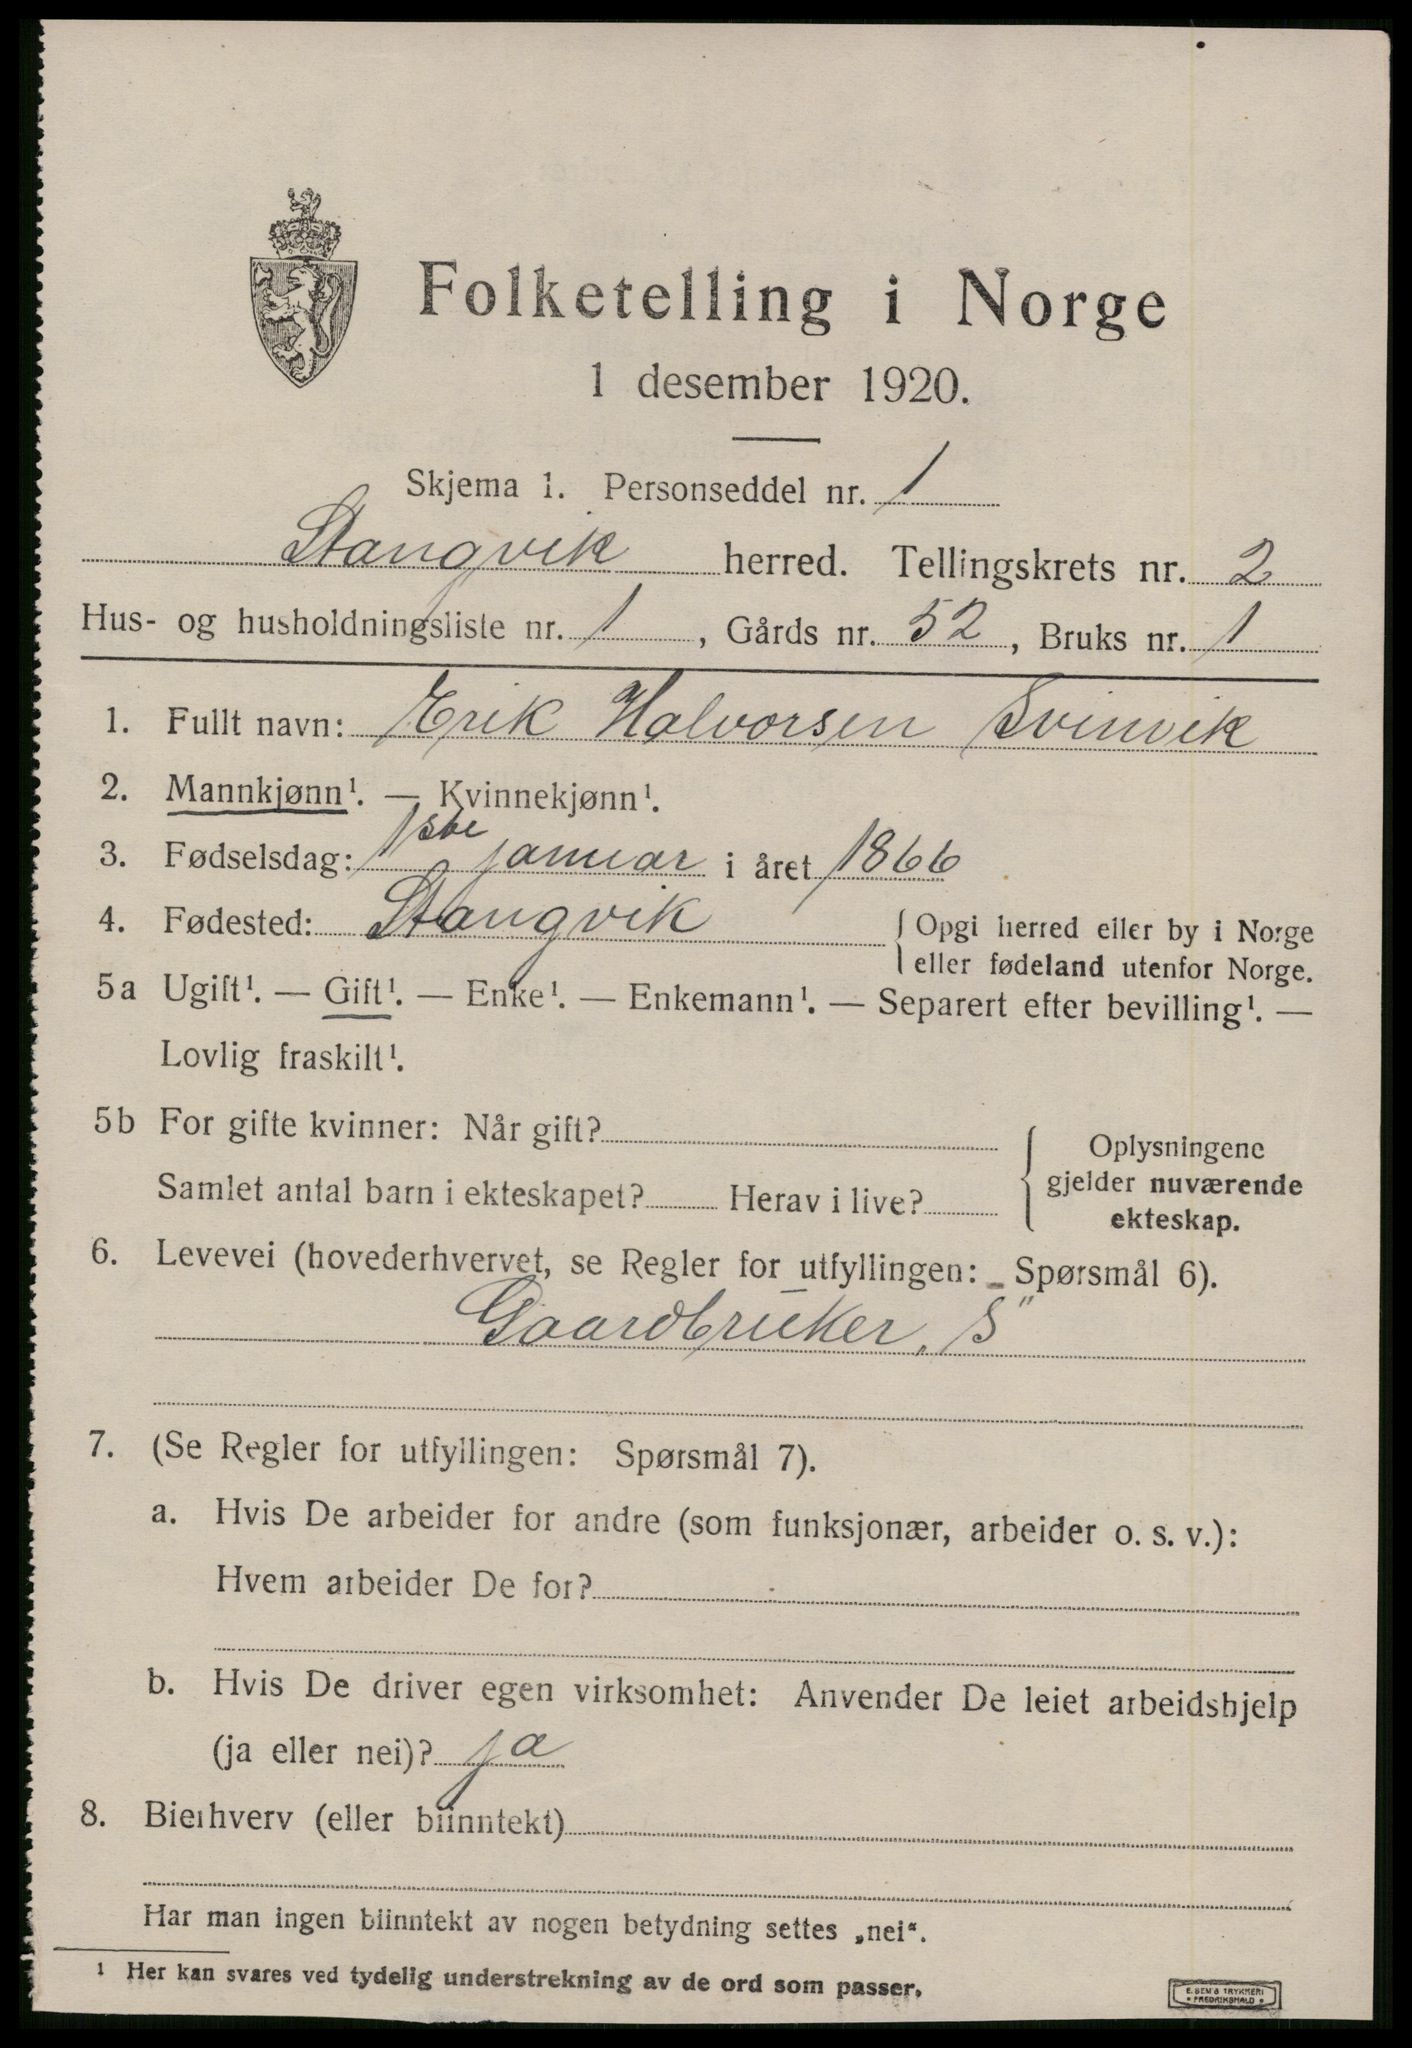 Folketelling i Norge
1 desember 1920.
Skjema 1. Personseddel nr. 1
Stangvik herred. Tellingskrets nr. 2
Hus- og husholdningsliste nr. 1, Gårds nr. 52, Bruks nr. 1
1. Fullt navn: Erik Halvorsen Svinvik
2. Mannkjønn¹. — Kvinnekjønn¹.
3. Fødselsdag: 1ste januar i året 1866
4. Fødested: Stangvik { Opgi herred eller by i Norge
eller fødeland utenfor Norge.
5a Ugift¹. — Gift¹. — Enke¹. — Enkemann¹. — Separert efter bevilling¹. —
Lovlig fraskilt¹.
5b For gifte kvinner: Når gift?
Samlet antal barn i ekteskapet? Herav i live?
{ Oplysningene
gjelder nuværende
ekteskap.
6. Levevei (hovederhvervet, se Regler for utfyllingen: Spørsmål 6).
Gaardbruker „S"
7. (Se Regler for utfyllingen: Spørsmål 7).
a. Hvis De arbeider for andre (som funksjonær, arbeider o. s. v.):
Hvem arbeider De for?
b. Hvis De driver egen virksomhet: Anvender De leiet arbeidshjelp
(ja eller nei)? ja
8. Bierhverv (eller biinntekt)
Har man ingen biinntekt av nogen betydning settes „nei“.
¹ Her kan svares ved tydelig understrekning av de ord som passer.
E. SEM'S TRYKKERI
• FREDRIKSHALD •